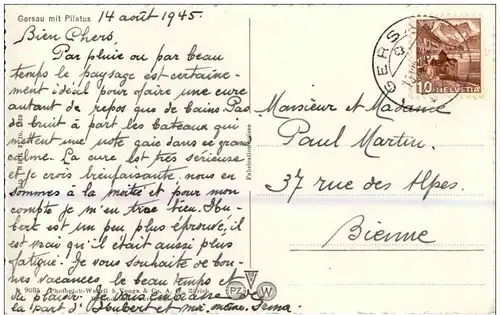 Gersau mit Pilatus 14 août 1945.
Bien Chers,
Par pluie ou par beau
temps le paysage est certaine-
ment idéal pour faire une cure
autant de repos que de bains. Pas
de bruit à part les bateaux qui
mettent une note gaie dans ce grand
calme. La cure est très sérieuse
et je crois bienfaisante. nous en
sommes à la moitié et pour mon
compte je m'en tire bien. Hu-
bert est un peu plus éprouvé, il
est vrai qu'il était aussi plus
fatigué. Je vous souhaite de bon-
nes vacances, le beau temps et
du plaisir. Je vous embrasse de
la part d'Hubert et moi-même. Irma.
9085 Photoglob-Wehrli & Vouga & Co. A. G. Zürich
Fabrication Suisse
PZ W
GERS
10 HELVETIA
Monsieur et Madame
Paul Martin.
37 rue des Alpes.
Bienne